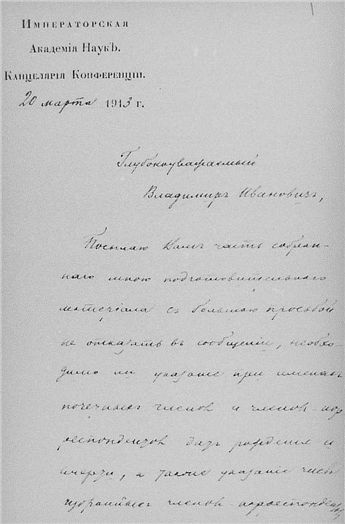 Императорская
Академія Наукъ.
Канцелярія Конференціи.
20 марта 1913 г.
Глубокоуважаемый
Владимиръ Ивановичъ,
Посылаю Вамъ часть собран-
наго мною подготовительнаго
матеріала съ большою просьбой
не отказать въ сообщеніи, необхо-
димо ли указаніе при именахъ
почетныхъ членовъ и членов-кор
респондентов дат рожденія и
смерти, а также указаніе
избранныхъ членов-корреспонден